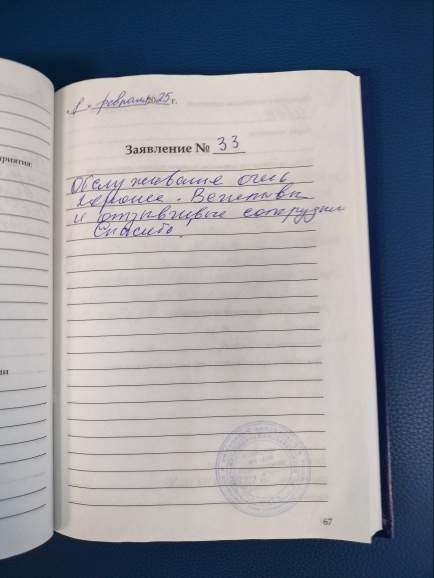 февраля 2025 г.
Заявление № 33
Обслуживание очень
хорошее. Вежливые
и отзывчивые сотрудни
Спасибо.
приятия:
ии
67